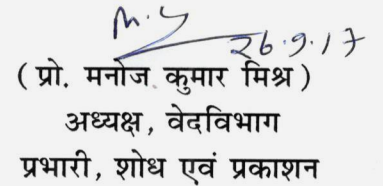 26.9.17
( प्रो. मनोज कुमार मिश्र )
अध्यक्ष, वेदविभाग
प्रभारी, शोध एवं प्रकाशन